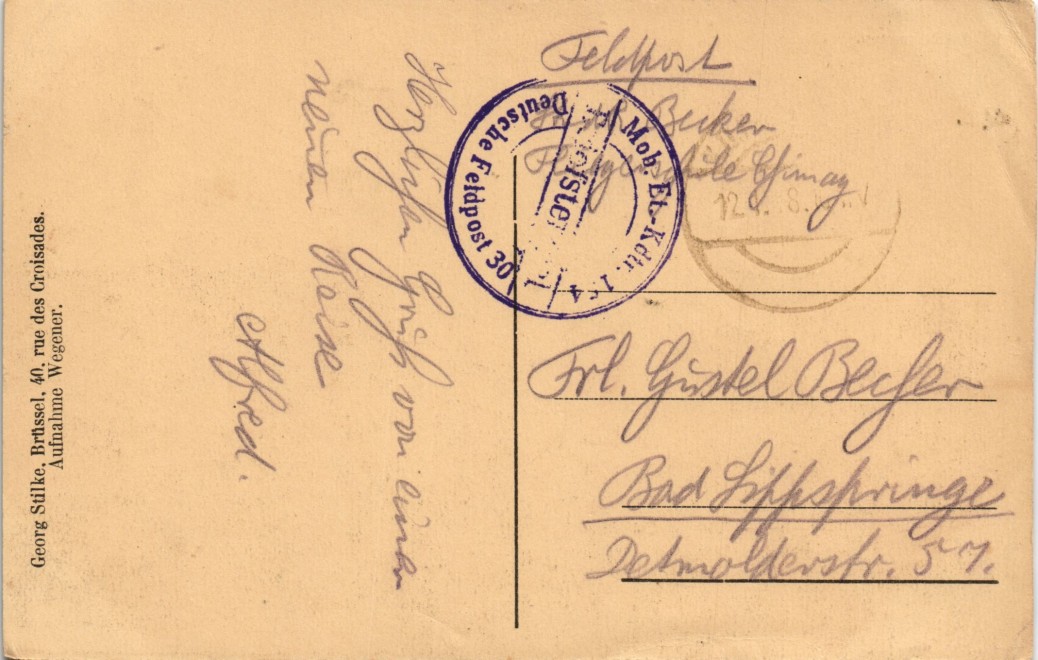 Feldpost
Becker
Chimay
Frl. Gustel Becher
Bad Lippspringe
Detmolderstr. 57.
Herzlichen Gruß von einer
neuen Reise
Alfred.
Mob. Et.-Kdtr.
Deutsche Feldpost 30
Georg Stilke, Brüssel, 40, rue des Croisades.
Aufnahme Wegener.